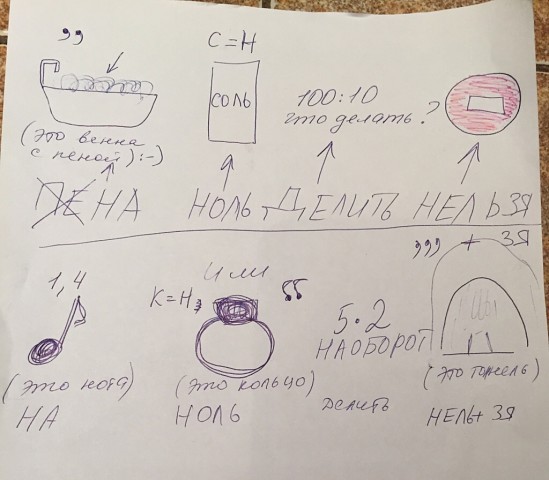 ,,
С=Н
СОЛЬ
100:10
что делать?
(это венна
с пеной) :-)
ПЕНА НОЛЬ, ДЕЛИТЬ НЕЛЬЗЯ
,,, + ЗЯ
1,4
или
К=Н
5·2
НАОБОРОТ
(это нота)
(это кольцо)
(это тоннель)
НА
НОЛЬ
делить
НЕЛЬ+ЗЯ